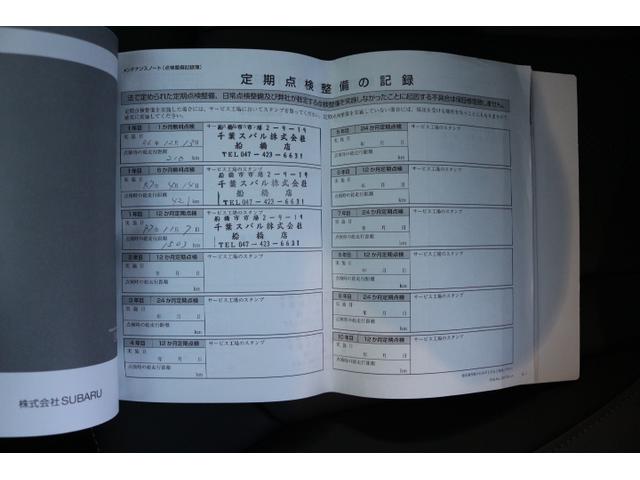 メンテナンスノート（点検整備記録簿）
定期点検整備の記録
法で定められた定期点検整備、日常点検整備及び弊社が指定する点検整備を実施しなかったことに起因する不具合は保証修理致しません。
1年目 1か月無料点検
実施日
点検時の総走行距離
km
サービス工場のスタンプ
船橋市市場2-9-19
千葉スバル株式会社
船橋店
TEL 047-423-6631
1年目 6か月無料点検
実施日
点検時の総走行距離
km
サービス工場のスタンプ
船橋市市場2-9-19
千葉スバル株式会社
船橋店
TEL 047-423-6631
1年目 12か月定期点検
実施日
点検時の総走行距離
km
サービス工場のスタンプ
船橋市市場2-9-19
千葉スバル株式会社
船橋店
TEL 047-423-6631
2年目 12か月定期点検
実施日
年 月 日
点検時の総走行距離
km
サービス工場のスタンプ
3年目 24か月定期点検
実施日
年 月 日
点検時の総走行距離
km
サービス工場のスタンプ
4年目 12か月定期点検
実施日
年 月 日
点検時の総走行距離
km
サービス工場のスタンプ
5年目 24か月定期点検
実施日
年 月 日
点検時の総走行距離
km
サービス工場のスタンプ
6年目 12か月定期点検
実施日
年 月 日
点検時の総走行距離
km
サービス工場のスタンプ
7年目 24か月定期点検
実施日
年 月 日
点検時の総走行距離
km
サービス工場のスタンプ
8年目 12か月定期点検
実施日
年 月 日
点検時の総走行距離
km
サービス工場のスタンプ
9年目 24か月定期点検
実施日
年 月 日
点検時の総走行距離
km
サービス工場のスタンプ
10年目 12か月定期点検
実施日
年 月 日
点検時の総走行距離
km
サービス工場のスタンプ
株式会社SUBARU